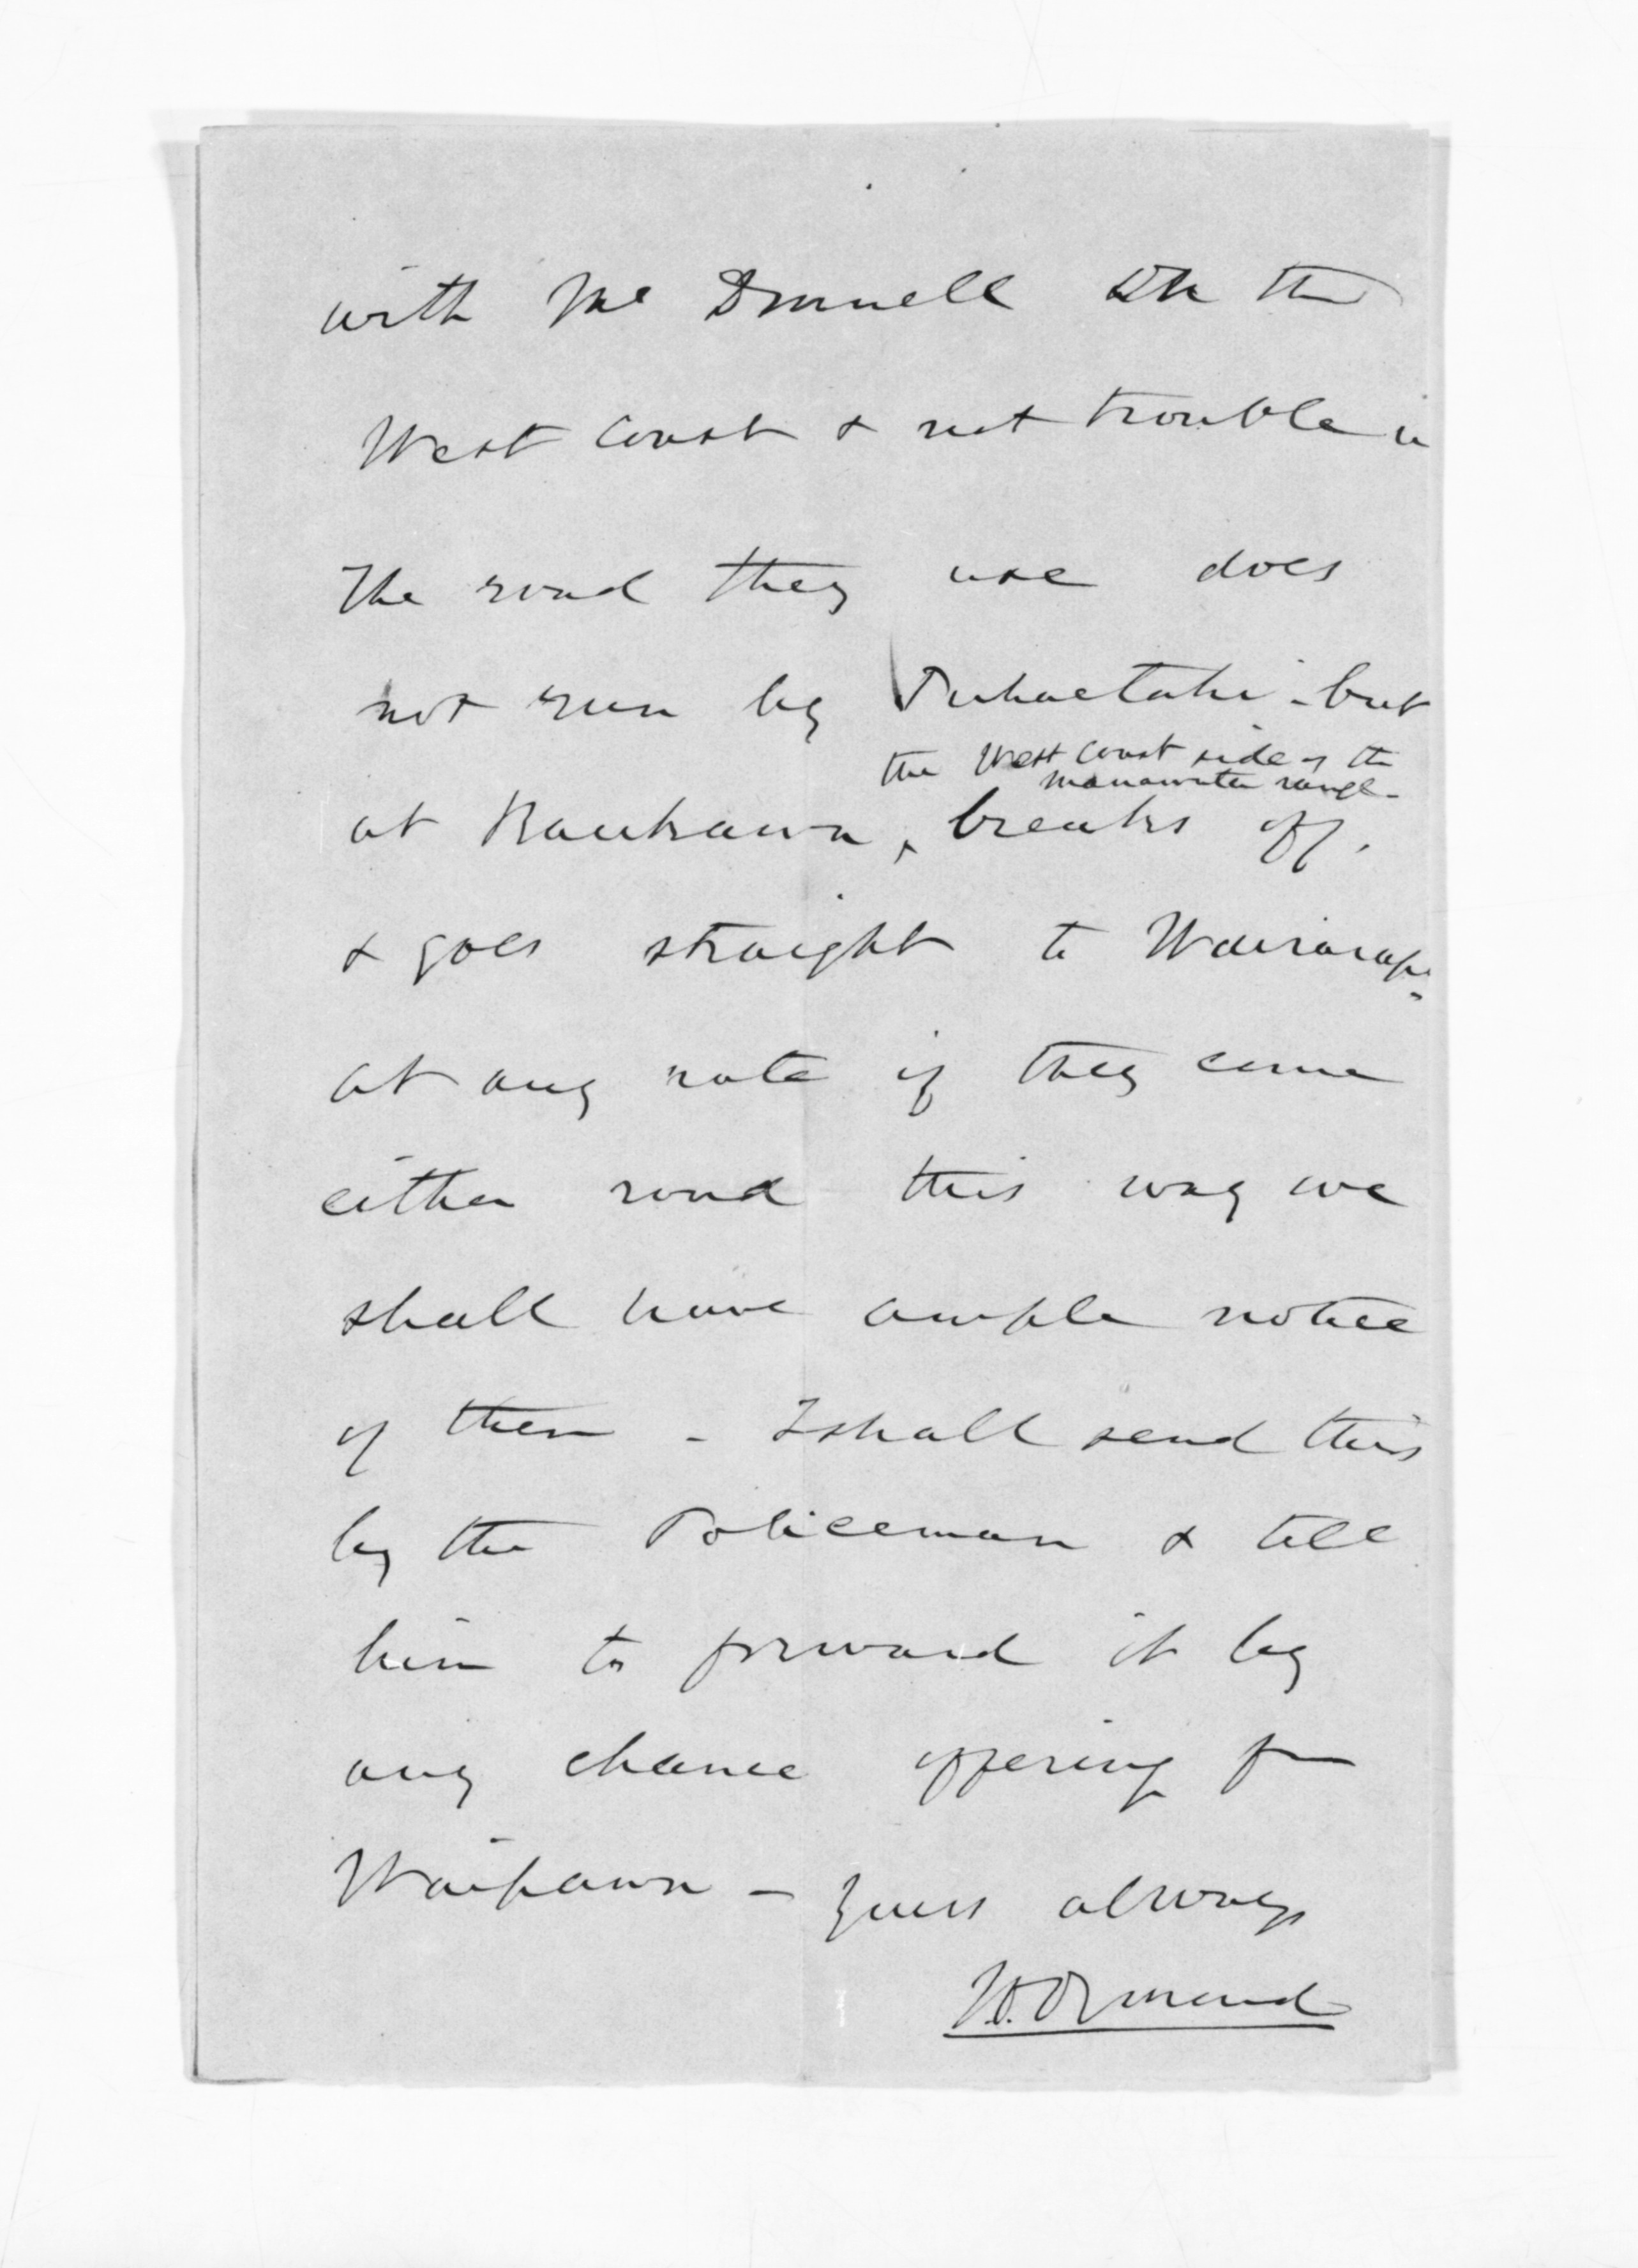 with McDonnell on the
West Coast & not trouble us
The road they use does
not run by Puhaetahi - but
the West Coast side of the
Manawatu range -
at Raukawa, breaks off,
& goes straight to Wairarapa -
at any rate if they come
either road this way we
shall have ample notice
of them - I shall send this
by the Policeman & tell
him to forward it by
any chance offering for
Waipawa - Yours always
J.D. Ormond